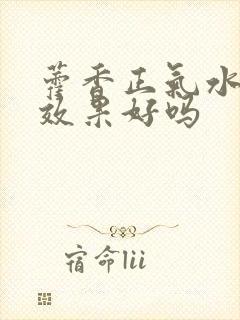 藿香正氣水
效果好吗
宿命lii